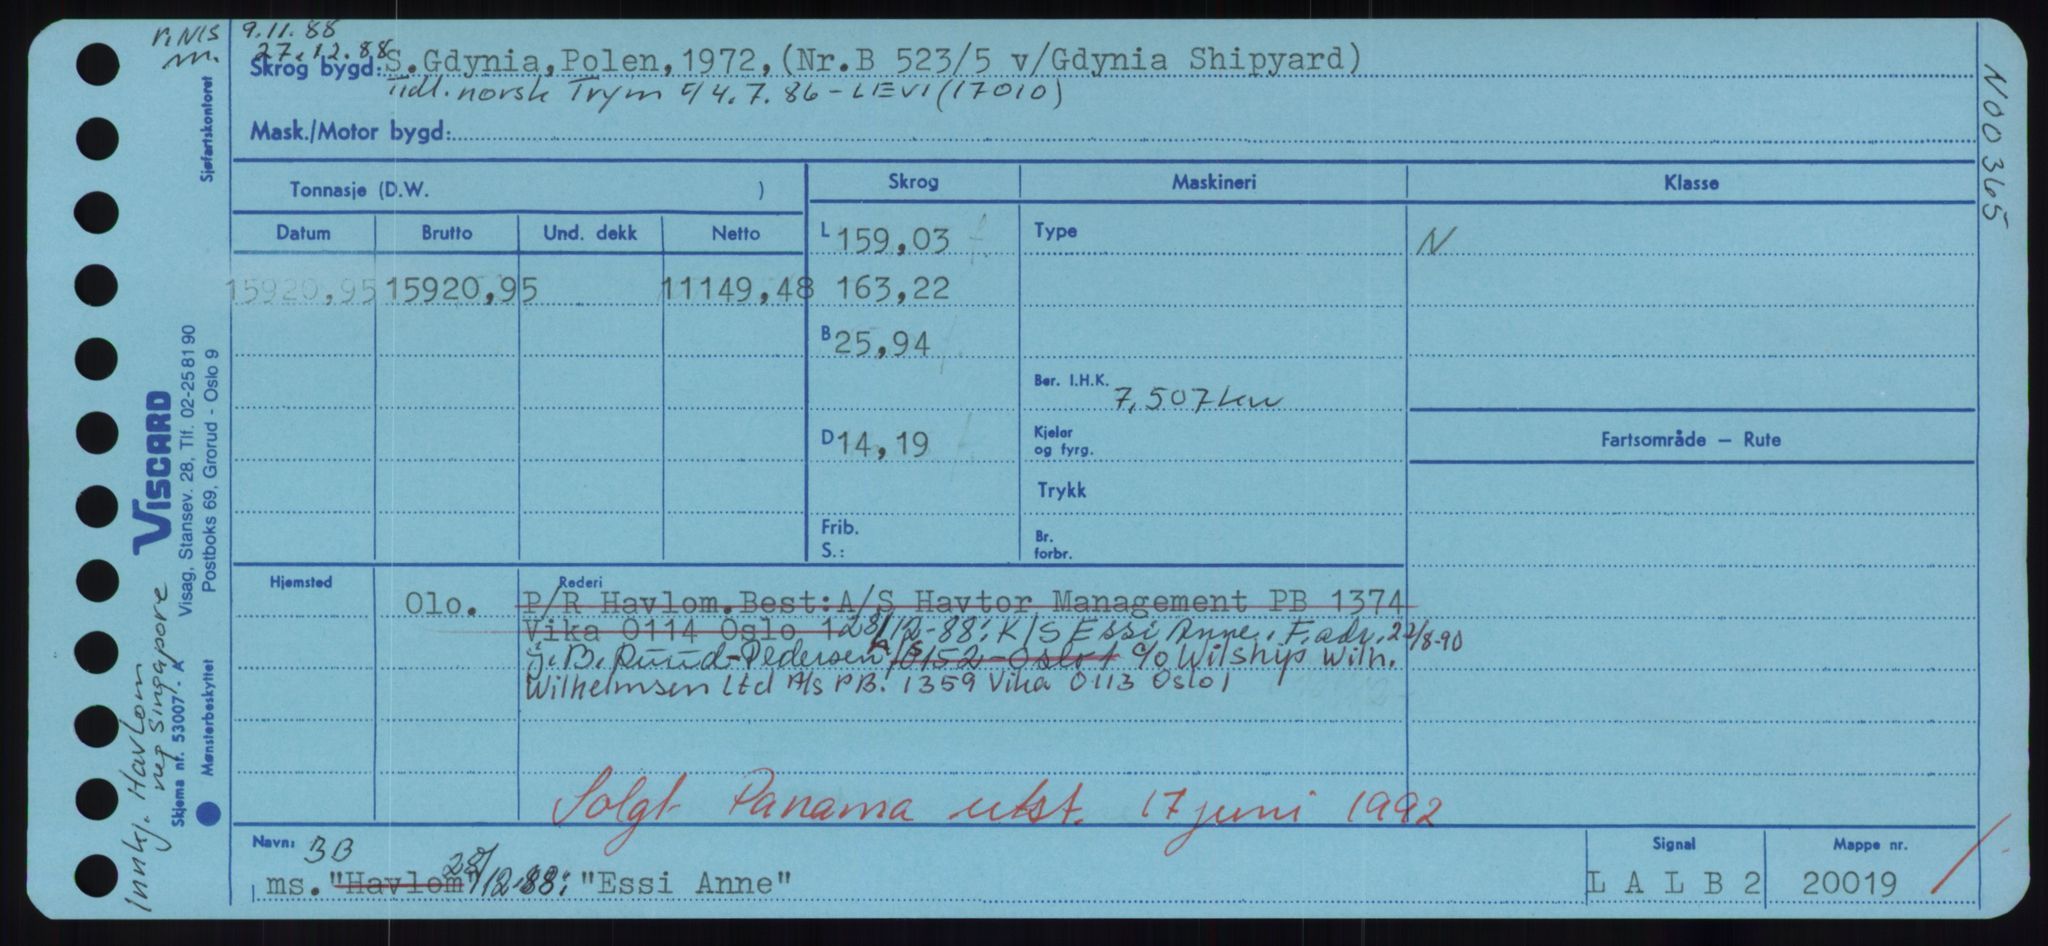 r. NIS 9.11.88
m. 27.12.88
Skrog bygd: S.Gdynia,Polen,1972,(Nr.B 523/5 v/Gdynia Shipyard)
Tidl. norsk Trym 4.7.86 - LEVI (17010)
Mask./Motor bygd:
Tonnasje (D.W. )
Skrog
Maskineri
Klasse
Datum Brutto Und. dekk Netto
L 159,03
Type
N
15920,95 15920,95 11149,48 163,22
B 25,94
Ber. I.H.K. 7,507 kw
D 14,19
Kjeler
og fyrg.
Fartsområde — Rute
Trykk
Frib.
S.:
Br.
forbr.
Hjemsted
Rederi
Olo. P/R Havlom.Best:A/S Havtor Management PB 1374
Vika 0114 Oslo 1 28/12-88: K/S Essi Anne. F.adr. 22/8-90
J.B. Ruud-Pedersen A/S 0152-Oslo 1 c/o Wilship Wilh.
Wilhelmsen Ltd A/s P.B. 1359 Vika 0113 Oslo 1
Solgt Panama utst. 17 juni 1992
Navn: BB
ms. "Havlom" 28/12-88: "Essi Anne"
Signal
L A L B 2
Mappe nr.
20019
Sjøfartskontoret
VISCARD
Visag, Stansev. 28, Tlf. 02-25 81 90
Postboks 69, Grorud - Oslo 9
Skjema nr. 53007 - A
Mønsterbeskyttet
Innkj. Havlom
reg Singapore
N00365